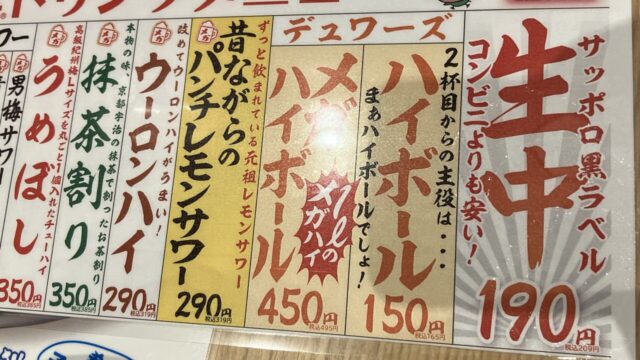 サッポロ黒ラベル
生中
コンビニよりも安い!
190円
税込209円
デュワーズ
2杯目からの主役は・・・
ハイボール
まぁハイボールでしょ!
150円
税込165円
メガ
ハイボール
1ℓの
メガハイ
450円
税込495円
ずっと飲まれている元祖レモンサワー
昔ながらの
パンチレモンサワー
290円
税込319円
改めてウーロンハイがうまい!
ウーロンハイ
290円
税込319円
本物の味、京都宇治の抹茶で割ったお茶割り
抹茶割り
350円
税込385円
高級紀州梅Lサイズを丸ごと1個入れたチューハイ
うめぼし
350円
男梅サワー